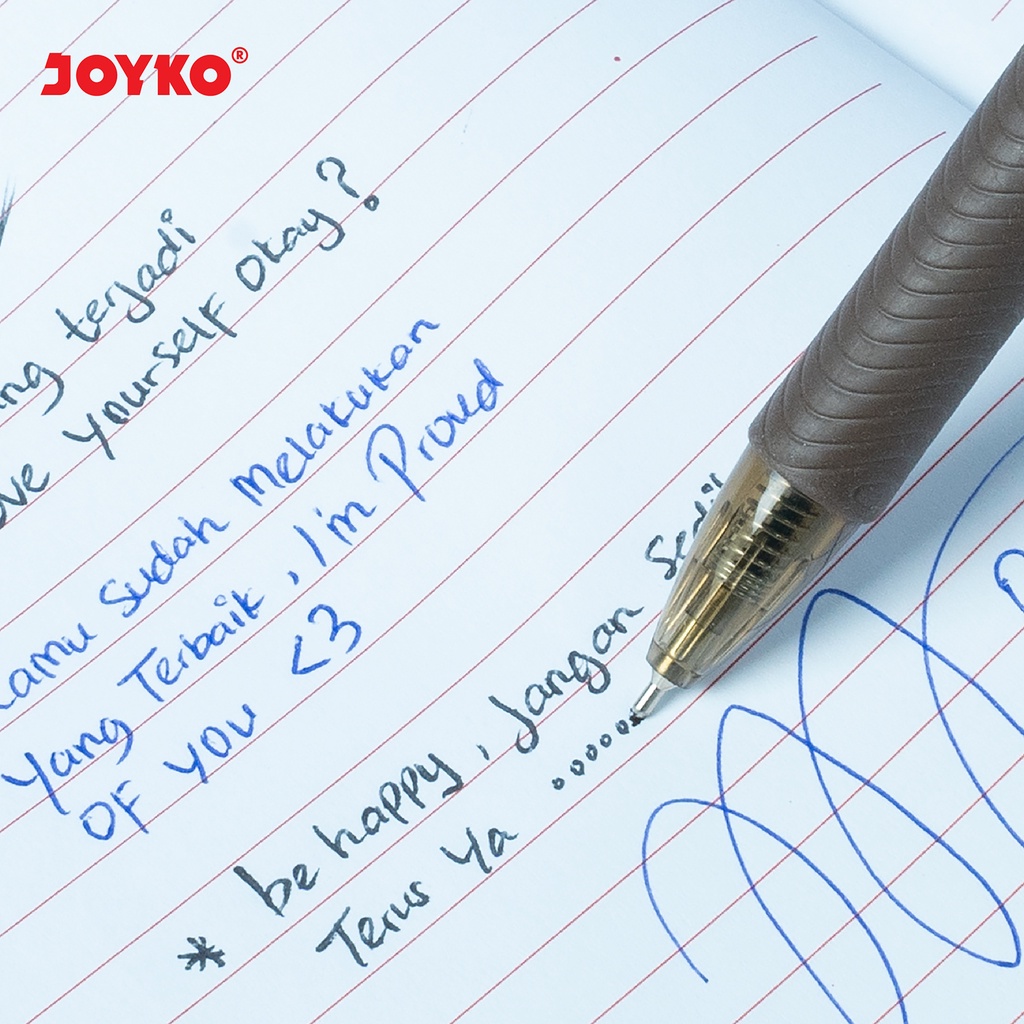 JOYKO®
terjadi
yourself okay?
kamu sudah Melakukan
Yang Terbaik, I'm Proud
OF YOU <3
* be happy, Jangan
Terus Ya